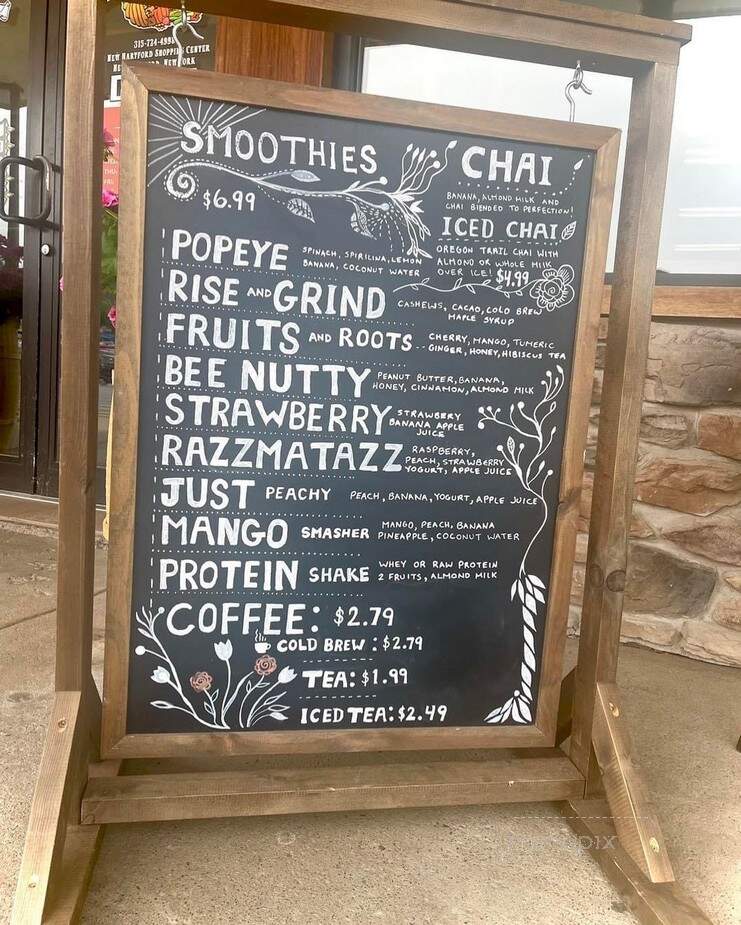 315-724-4998
NEW HARTFORD SHOPPING CENTER
NEW YORK
SMOOTHIES
$6.99
CHAI
BANANA, ALMOND MILK AND
CHAI BLENDED TO PERFECTION!
ICED CHAI
OREGON TRAIL CHAI WITH
ALMOND OR WHOLE MILK
OVER ICE! $4.99
POPEYE SPINACH, SPIRILINA, LEMON
BANANA, COCONUT WATER
RISE AND GRIND CASHEWS, CACAO, COLD BREW
MAPLE SYRUP
FRUITS AND ROOTS CHERRY, MANGO, TUMERIC
GINGER, HONEY, HIBISCUS TEA
BEE NUTTY PEANUT BUTTER, BANANA,
HONEY, CINNAMON, ALMOND MILK
STRAWBERRY STRAWBERRY
BANANA APPLE
JUICE
RAZZMATAZZ RASPBERRY,
PEACH, STRAWBERRY
YOGURT, APPLE JUICE
JUST PEACHY PEACH, BANANA, YOGURT, APPLE JUICE
MANGO SMASHER MANGO, PEACH, BANANA
PINEAPPLE, COCONUT WATER
PROTEIN SHAKE WHEY OR RAW PROTEIN
2 FRUITS, ALMOND MILK
COFFEE: $2.79
COLD BREW: $2.79
TEA: $1.99
ICED TEA: $2.49